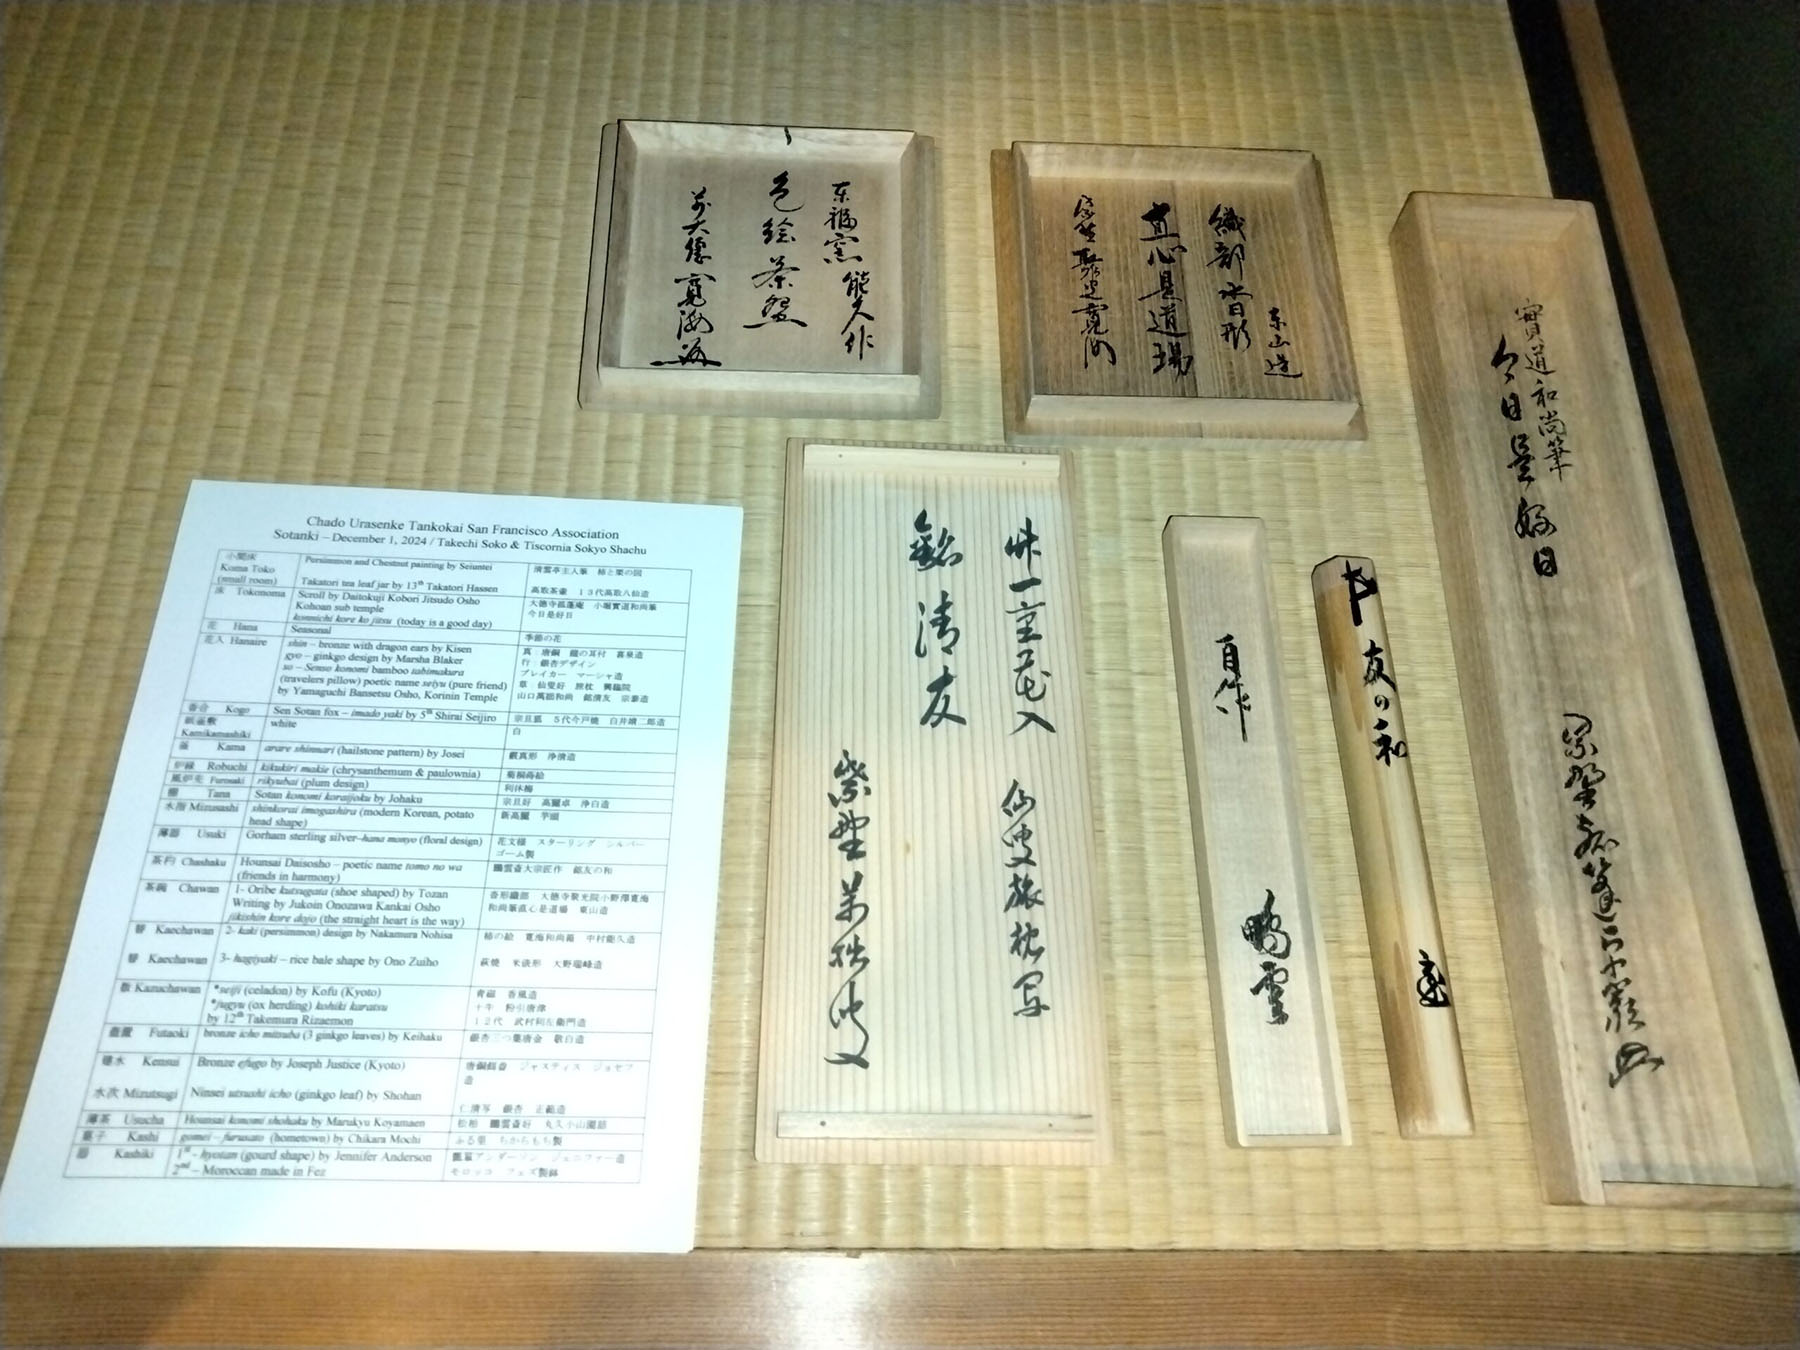 Chado Urasenke Tankokai San Francisco Association
Sotanki – December 1, 2024 / Takechi Soko & Tiscornia Sokyo Shachu
小間床
Koma Toko
(small room)
Persimmon and Chestnut painting by Seiuntei
Takatori tea leaf jar by 13th Takatori Hassen
清雲亭主人筆 柿と栗の図
高取茶壷 13代高取八仙造
床 Tokonoma
Scroll by Daitokuji Kobori Jitsudo Osho
Kohoan sub temple
konnichi kore ko jitsu (today is a good day)
大徳寺孤篷庵 小堀實道和尚筆
今日是好日
花 Hana
Seasonal
季節の花
花入 Hanaire
shin – bronze with dragon ears by Kisen
gyo – ginkgo design by Marsha Blaker
so – Senso konomi bamboo tabimakura
(travelers pillow) poetic name seiyu (pure friend)
by Yamaguchi Bansetsu Osho, Korinin Temple
真:唐銅 龍の耳付 喜泉造
行:銀杏デザイン
ブレイカー マーシャ造
草 仙叟好 旅枕 興臨院
山口萬拙和尚 銘清友 宗泰造
香合 Kogo
Sen Sotan fox – imado yaki by 5th Shirai Seijiro
宗旦狐 5代今戸焼 白井靖二郎造
紙釜敷
Kamikamashiki
white
白
釜 Kama
arare shinnari (hailstone pattern) by Josei
霰真形 浄清造
炉縁 Robuchi
kikukiri makie (chrysanthemum & paulownia)
菊桐蒔絵
風炉先 Furosaki
rikyubai (plum design)
利休梅
棚 Tana
Sotan konomi koraijoku by Johaku
宗旦好 高麗卓 浄白造
水指 Mizusashi
shinkorai imogashira (modern Korean, potato
head shape)
新高麗 芋頭
薄器 Usuki
Gorham sterling silver–hana monyo (floral design)
花文様 スターリング シルバー
ゴーム製
茶杓 Chashaku
Hounsai Daisosho – poetic name tomo no wa
(friends in harmony)
鵬雲斎大宗匠作 銘友の和
茶碗 Chawan
1- Oribe kutsugata (shoe shaped) by Tozan
Writing by Jukoin Onozawa Kankai Osho
jikishin kore dojo (the straight heart is the way)
沓形織部 大徳寺聚光院小野澤寛海
和尚筆直心是道場 東山造
替 Kaechawan
2- kaki (persimmon) design by Nakamura Nohisa
柿の絵 寛海和尚箱 中村能久造
替 Kaechawan
3- hagiyaki – rice bale shape by Ono Zuiho
萩焼 米俵形 大野瑞峰造
数 Kazuchawan
*seiji (celadon) by Kofu (Kyoto)
*jugyu (ox herding) kohiki karatsu
by 12th Takemura Rizaemon
青磁 香風造
十牛 粉引唐津
12代 武村利左衛門造
蓋置 Futaoki
bronze icho mitsuba (3 ginkgo leaves) by Keihaku
銀杏三つ葉唐金 敬白造
建水 Kensui
Bronze efugo by Joseph Justice (Kyoto)
唐銅餌畚 ジャスティス ジョセフ
造
水次 Mizutsugi
Ninsei utsushi icho (ginkgo leaf) by Shohan
仁清写 銀杏 正範造
薄茶 Usucha
Hounsai konomi shohaku by Marukyu Koyamaen
松柏 鵬雲斎好 丸久小山園詰
菓子 Kashi
gomei – furusato (hometown) by Chikara Mochi
ふる里 ちからもち製
器 Kashiki
1st - hyotan (gourd shape) by Jennifer Anderson
2nd – Moroccan made in Fez
瓢箪アンダーソン ジェニファー造
モロッコ フェズ製鉢
東福窯 能久作
色絵茶盌
前大徳寛海
東山造
織部沓形
直心是道場
竹一重花入 仙叟旅枕写
銘 清友
紫野 萬拙
自作
鵬雲
友の和
實道和尚筆
今日是好日